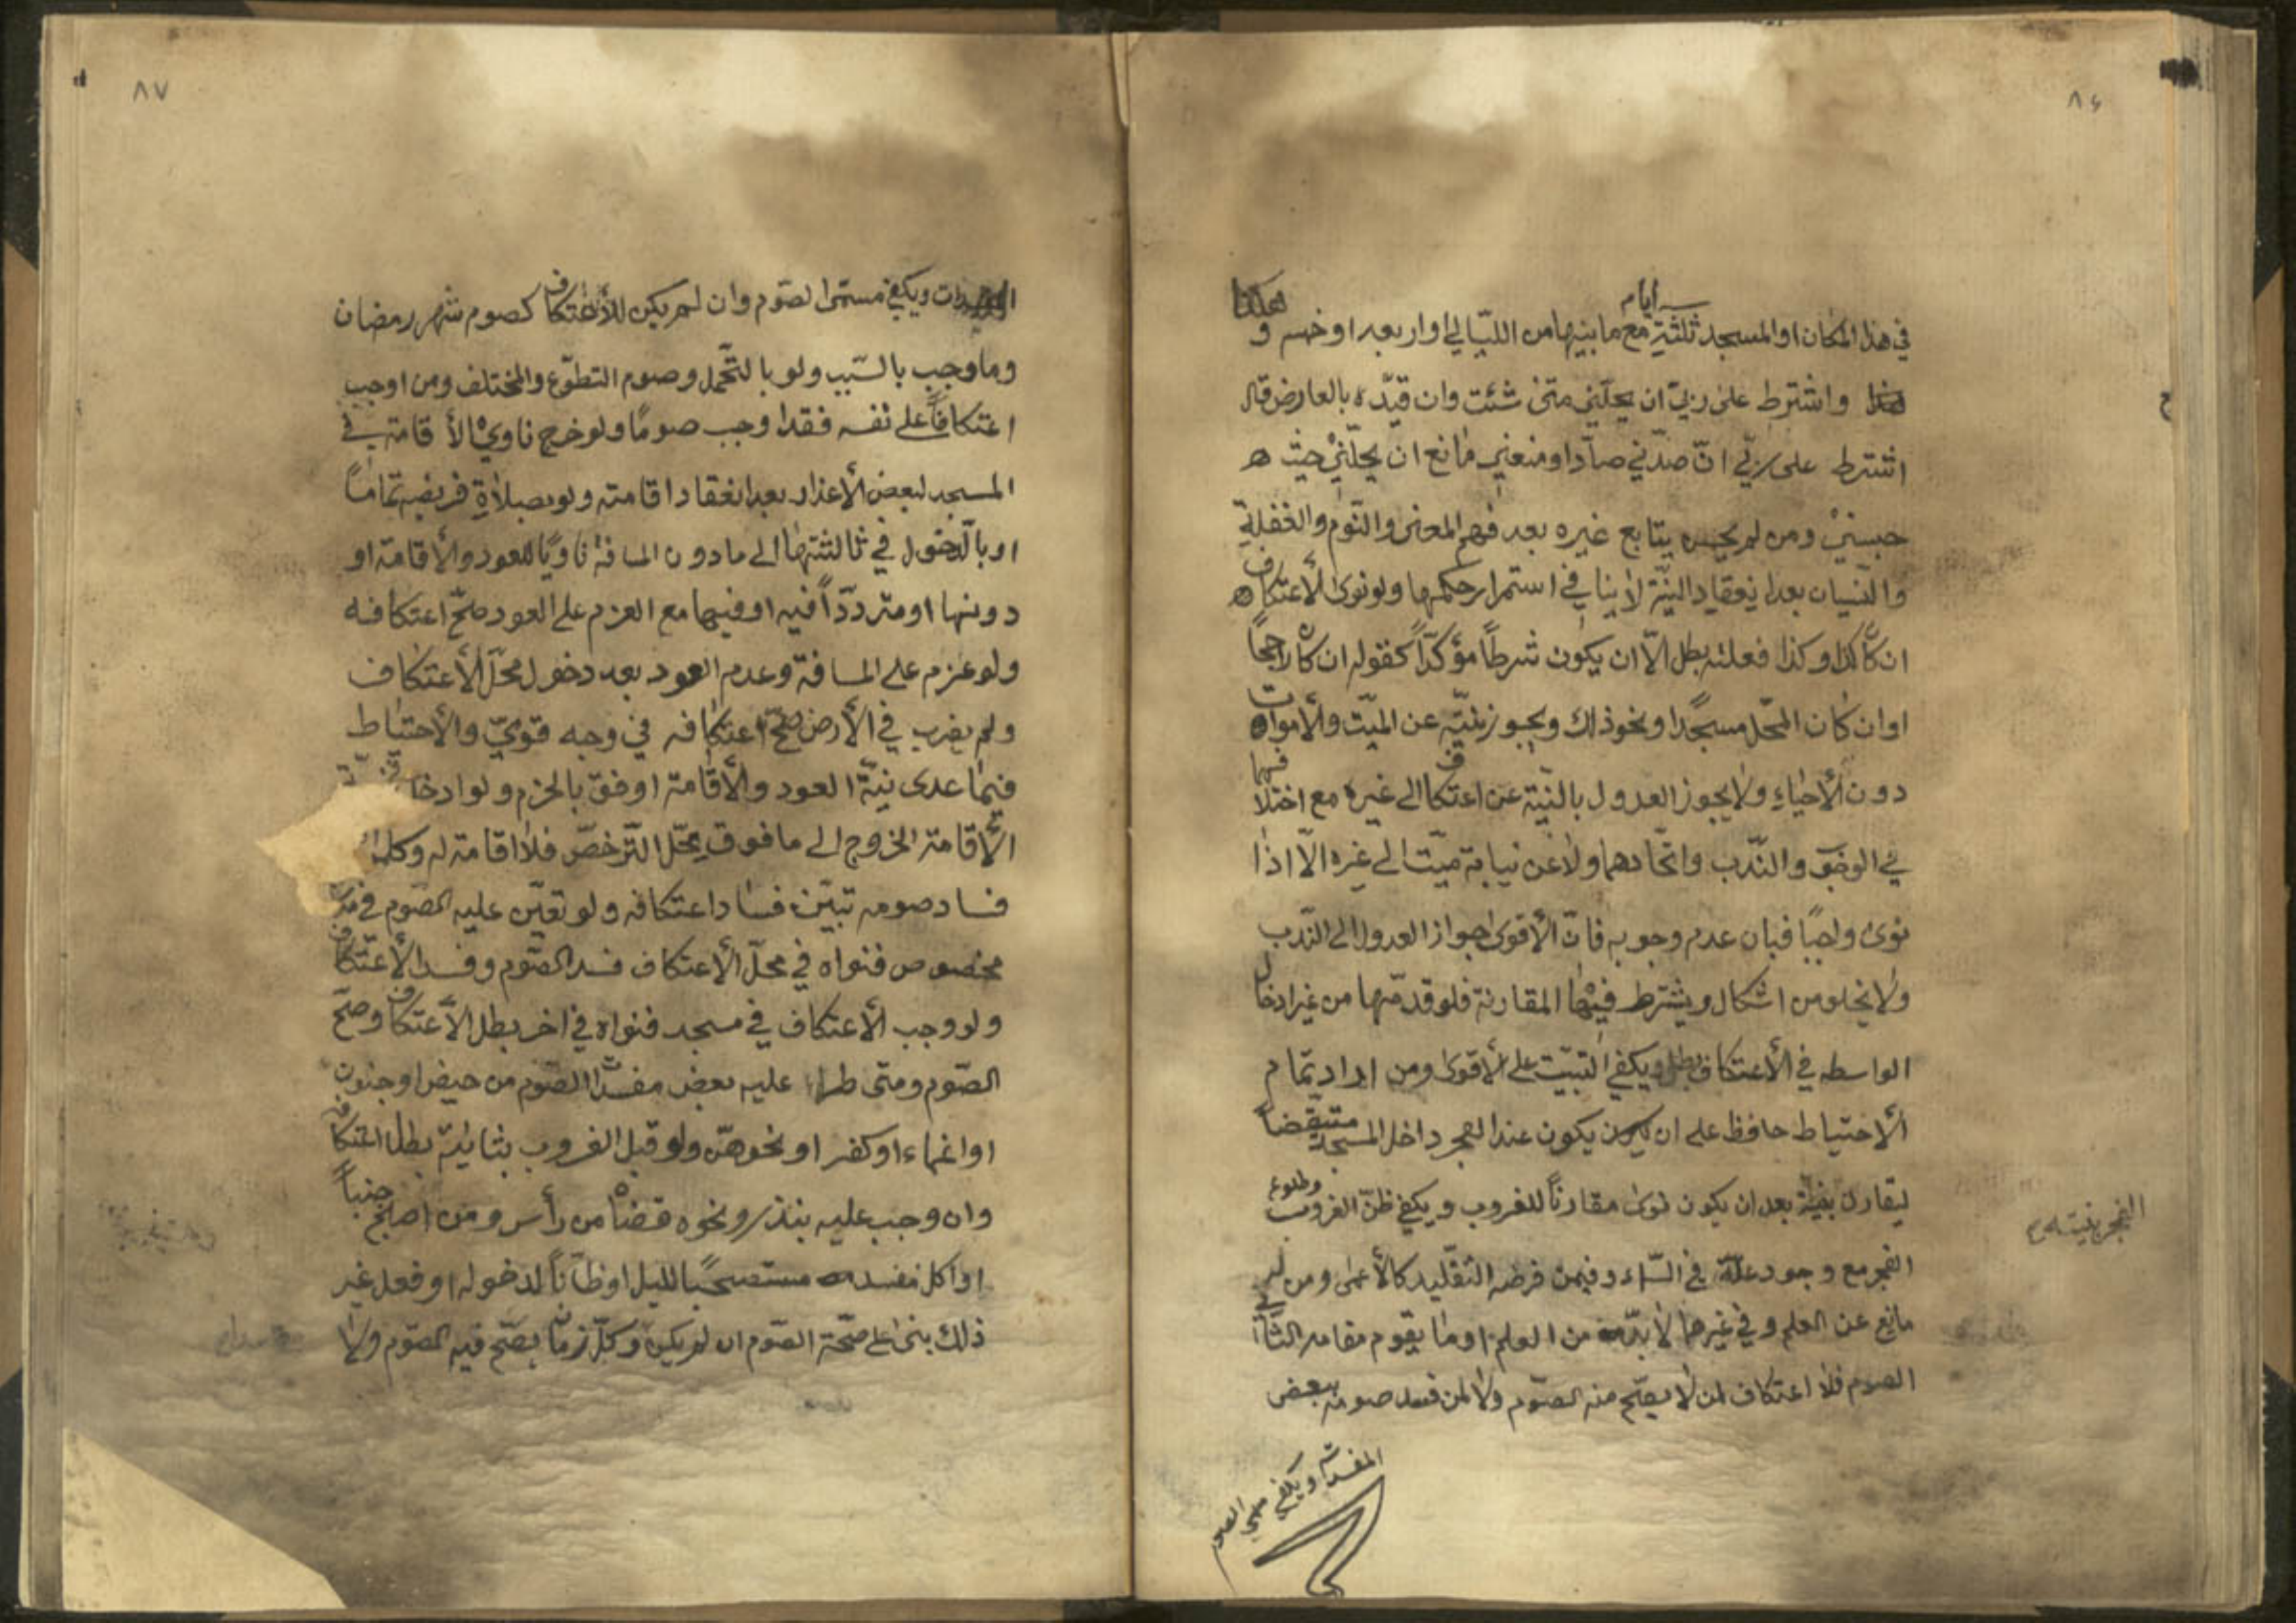 ٨٦
في هذا المكان او المسجد ثلثة ايام مع ما بينها من الليالي او اربعه او خمسه و هكذا
واشترط على ربي ان يحلني متى شئت وان قيّده بالعارض قال
اشترط على ربّي انّ صدّني صادّ او منعني مانع ان يحلّني حيث
حبسني ومن لم يحسن يتابع غيره بعد فهم المعنى والنّوم والغفلة
والنّسيان بعد انعقاد النيّة لا ينافي استمرار حكمها ولو نوى الأعتكاف
ان كان كذا وكذا فعلته بطل الّا ان يكون شرطاً مؤكّداً كقوله ان كان راجحاً
او ان كان المحّل مسجدًا ونحو ذلك ويجوز بنيّته عن الميّت والأموات
دون الأحياء ولا يجوز العدول بالنيّة عن اعتكاف الى غيره مع اختلافهما
في الوجوب والنّدب واتحّادهما ولا عن نيابة ميّت الى غيره الّا اذا
نوى واجبًا فبان عدم وجوبه فانّ الأقوى جواز العدول الى النّدب
ولا يخلو من اشكال ويشترط فيها المقارنة فلو قدمّها من غير ادخال
الواسطه في الأعتكاف بطل ويكفي التبيّت على الأقوى ومن اراد تمام
الأحتياط حافظ على ان يكون عند الفجر داخل المسجد متيقّضاً
ليقارن بنيّة بعد ان يكون نوى مقارناً للغروب ويكفي ظنّ الغروب وطلوع
الفجر مع وجود علّة في السّماء وفيمن فرضه التّقليد كالأعمى ومن له
مانع عن العلم وفي غيرهما لا بدّ من العلم او ما يقوم مقامه الثّاني
الصوم فلا اعتكاف لمن لا يصّح منه الصّوم ولا لمن فسد صومه ببعض
المفسدات ويكفي مسمّى الصوم
٨٧
ويكفي مسمّى الصّوم وان لم يكن للأعتكاف كصوم شهر رمضان
وما وجب بالسّبب ولو بالتّحمّل وصوم التطوّع والمختلف ومن اوجب
اعتكافاً على نفسه فقد اوجب صومًا ولو خرج ناوي الأقامة في
المسجد لبعض الأعذار بعد انعقاد اقامته ولو بصلاة فريضه تماماً
او بالدّخول في ثالثتها الى ما دون المسافة ناويًا للعود والأقامة او
دونها او متردّداً فيه او فيهما مع العزم على العود صحّ اعتكافه
ولو عزم على المسافة وعدم العود بعد دخول محلّ الأعتكاف
ولم يضرب في الأرض صحّ اعتكافه في وجه قويّ والأحتياط
فيما عدى نيّة العود والأقامة اوفق بالحزم ولو ادخل
الأقامة الخروج الى ما فوق محّل التّرخصّ فلا اقامة له وكلما
فساد صومه تبيّن فساد اعتكافه ولو تعيّن عليه الصّوم في
مخصوص فنواه في محلّ الأعتكاف فسد الصّوم وفسد الأعتكاف
ولو وجب الأعتكاف في مسجد فنواه في اخر بطل الأعتكاف وصحّ
الصّوم ومتى طرأ عليه بعض مفسدات الصّوم من حيض او جنون
او اغماء او كفر او نحوهنّ ولو قبل الغروب بثانية بطل اعتكافه
وان وجب عليه بنذر ونحوه قضاه من رأس ومن اصبح جنباً
او اكل مستصحبًا لليل او ظاناً لدخوله او فعل غير
ذلك بنى على صحّة الصّوم ان لم يكن وكلّ زمان يصّح فيه الصّوم ولا